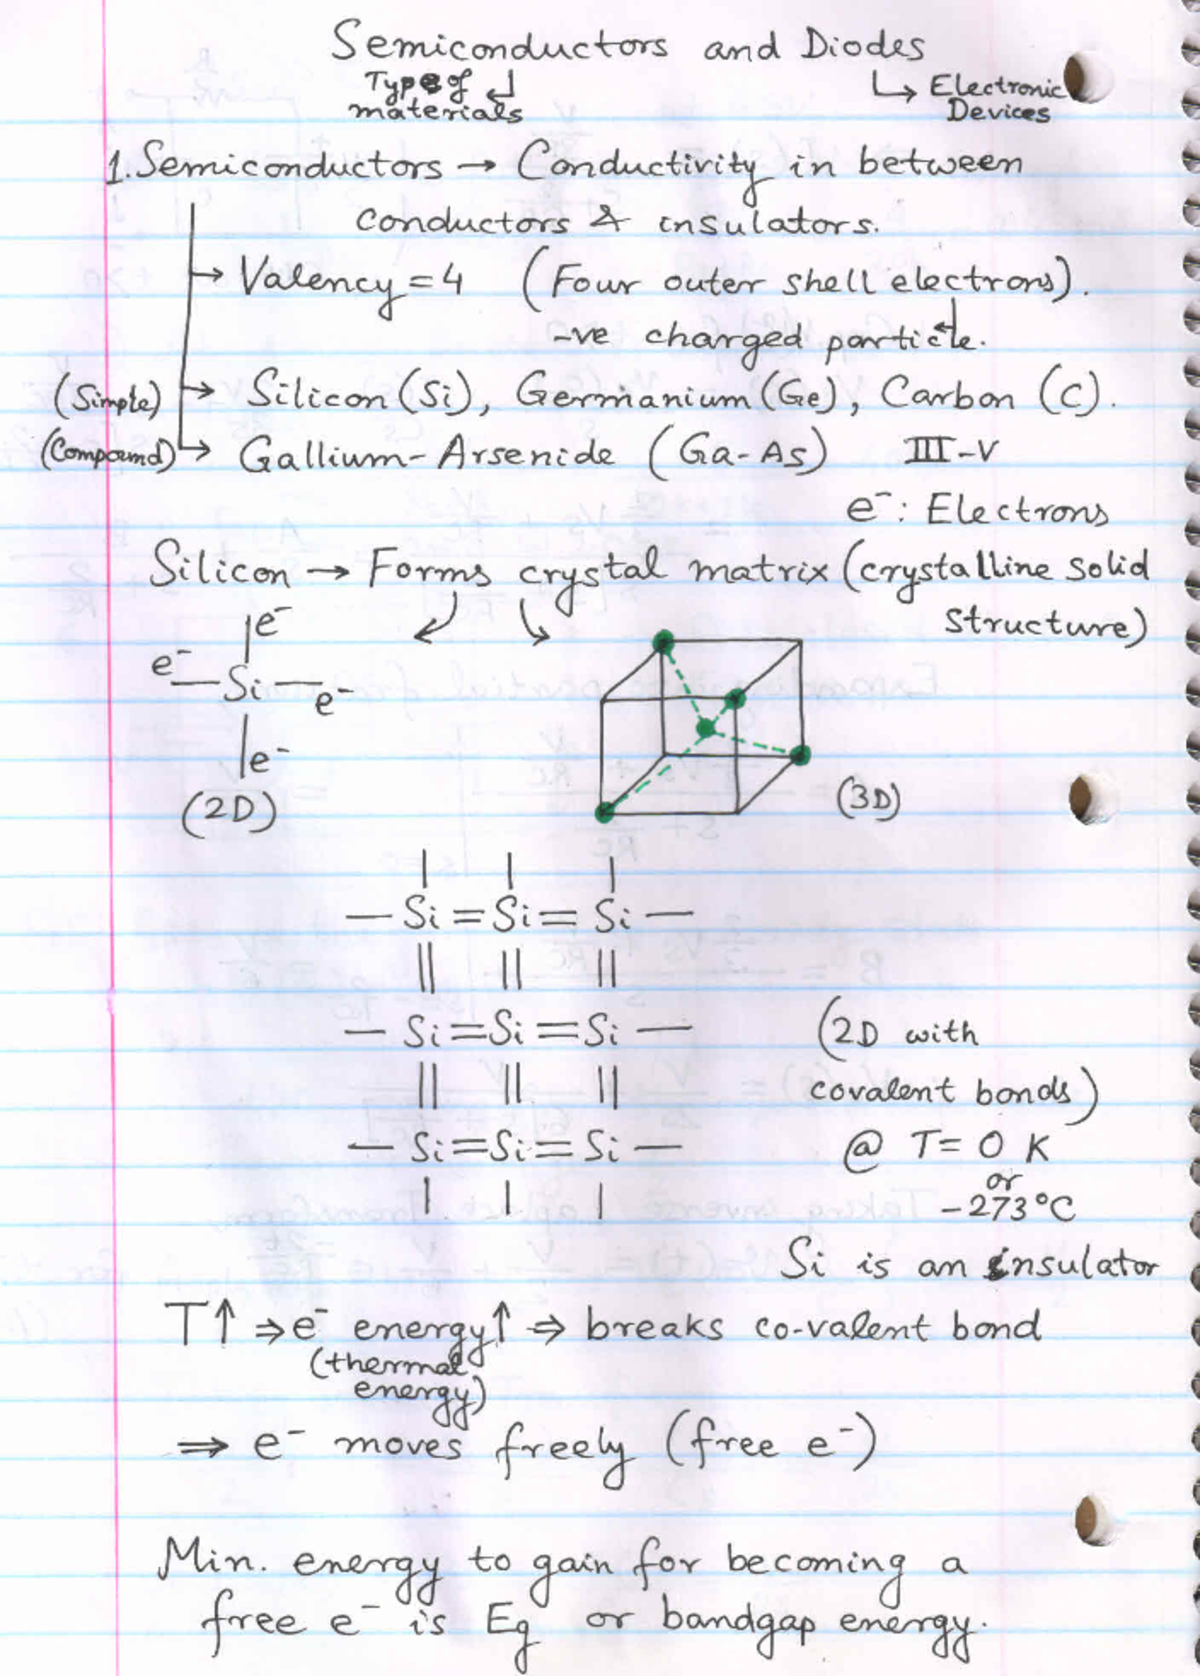 Semiconductors and Diodes
Type of materials ↲
↳ Electronic Devices
1. Semiconductors → Conductivity in between
conductors & insulators.
→ Valency = 4 (Four outer shell electrons).
-ve charged particle. ↲
(Simple) → Silicon (Si), Germanium (Ge), Carbon (C).
(Compound) → Gallium-Arsenide (Ga-As) III-V
e⁻: Electrons
Silicon → Forms crystal matrix (crystalline solid
structure)
e⁻
e⁻ — Si — e⁻
e⁻
(2D)
(3D)
— Si = Si = Si —
— Si = Si = Si —
(2D with
covalent bonds)
— Si = Si = Si —
@ T = 0 K
or
-273°C
Si is an insulator
T↑ ⇒ e⁻ energy↑ ⇒ breaks co-valent bond
(thermal
energy)
⇒ e⁻ moves freely (free e⁻)
Min. energy to gain for becoming a
free e⁻ is Eg or bandgap energy.